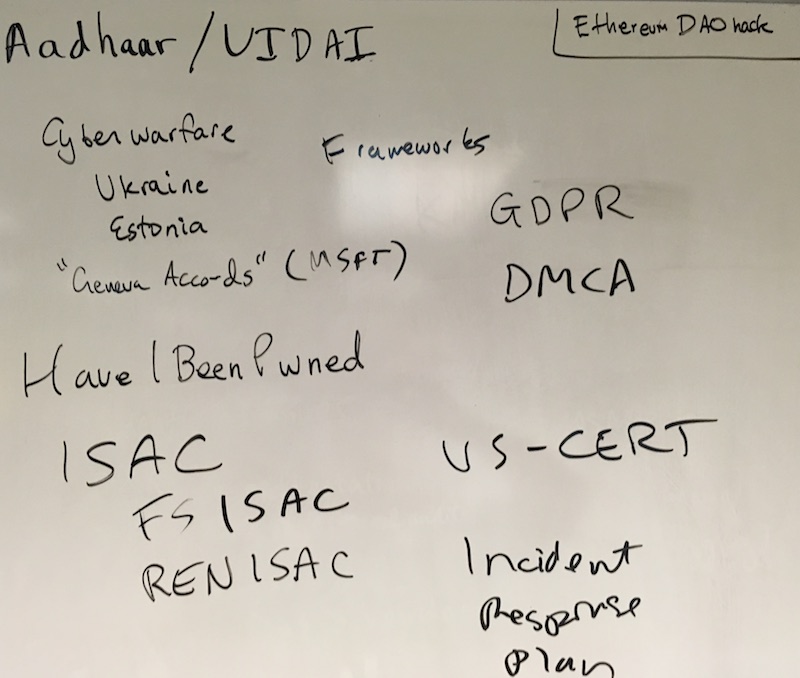 Aadhaar / UIDAI
Ethereum DAO hack
Cyberwarfare
Ukraine
Estonia
"Geneva Accords" (MSFT)
Frameworks
GDPR
DMCA
Have I Been Pwned
ISAC
FS ISAC
REN ISAC
US-CERT
Incident
Response
Plan